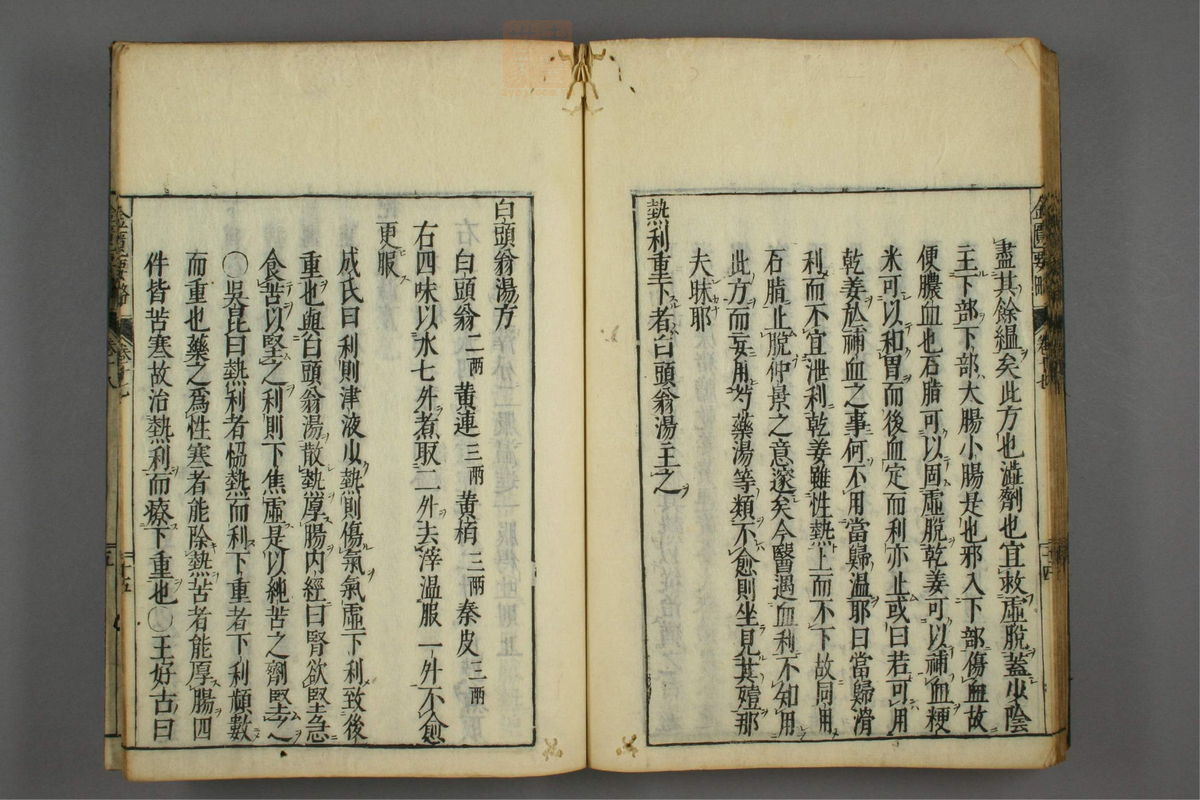 盡其餘緼矣此方也澁劑也宜救虛脫蓋少陰
王下部下部大腸小腸是也邪入下部傷血故
便膿血也石脂可以固虛脫乾姜可以補血粳
米可以和胃而後血定而利亦止或曰若可用
乾姜於補血之事何不用當歸温耶曰當歸滑
利而不宜泄利乾姜雖性熱上而不下故同用
石脂止脫仲景之意邃矣今醫遇血利不知用
此方而妄用芍藥湯等類不愈則坐見其殪那
夫昧耶
熱利重下者白頭翁湯主之
白頭翁湯方
白頭翁二兩 黄連三兩 黄栢三兩 秦皮三兩
右四味以水七升煮取二升去滓温服一升不愈
更服
成氏曰利則津液少熱則傷氣氣虛下利致後
重也與白頭翁湯散熱厚腸内經曰腎欲堅急
食苦以堅之利則下焦虛是以純苦之劑堅之
○吳昆曰熱利者恊熱而利下重者下利頻數
而重也藥之爲性寒者能除熱苦者能厚腸四
件皆苦寒故治熱利而療下重也○王好古曰
金匱要略
卷十七
二十五